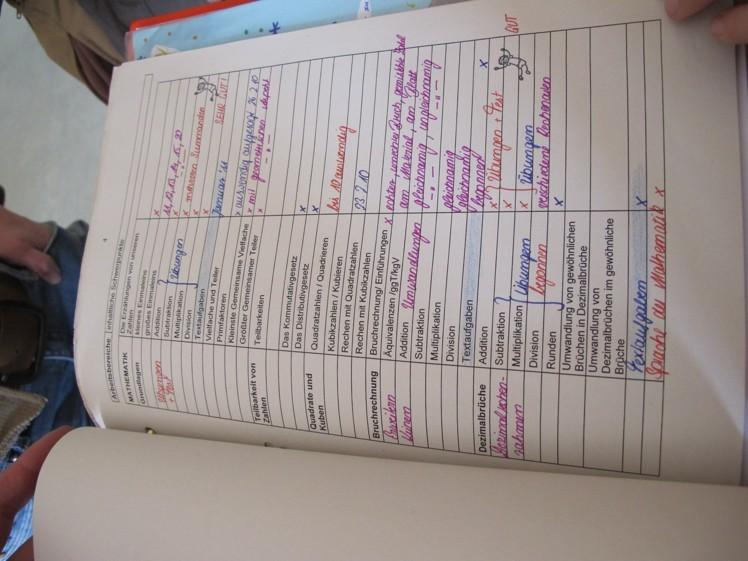 4
Arbeitsbereiche Inhaltliche Schwerpunkte
MATHEMATIK Die Erzählungen von unseren Zahlen
Grundlagen kleines Einmaleins x
großes Einmaleins 11, 12, 13, 14, 15, 20
Addition x
Subtraktion x Übungen
Multiplikation x mehrere Summanden
Division x
Textaufgaben x
Vielfache und Teiler SEHR GUT!
Primfaktoren Januar
Kleinste Gemeinsame Vielfache x auswendig aufgesagt 26 2 10
Größter Gemeinsamer Teiler x mit geometrischen
Teilbarkeit von Zahlen Teilbarkeiten x - " -
Das Kommutativgesetz
Das Distributivgesetz x
Quadrate und Kuben Quadratzahlen / Quadrieren x
Kubikzahlen / Kubieren bis 10 auswendig
Rechnen mit Quadratzahlen
Rechnen mit Kubikzahlen 23 2 10
Bruchrechnung Bruchrechnung/ Einführungen x echter, unechter Bruch, gemischte Zahl
Äquivalenzen /ggT/kgV Umwandlungen am Material, am Blatt
Addition gleichnamig, ungleichnamig
Subtraktion - " - - " -
Multiplikation gleichnamig
Division gleichnamig
Textaufgaben begonnen
Dezimalbrüche Addition x x
Dezimalrechenrahmen Subtraktion x Übungen + Test GUT
Multiplikation x Übungen Übungen
Division begonnen verschiedene Rechenarten
Runden x
Umwandlung von gewöhnlichen Brüchen in Dezimalbrüche
Umwandlung von Dezimalbrüchen in gewöhnliche Brüche
Textaufgaben x
Sprache der Mathematik x